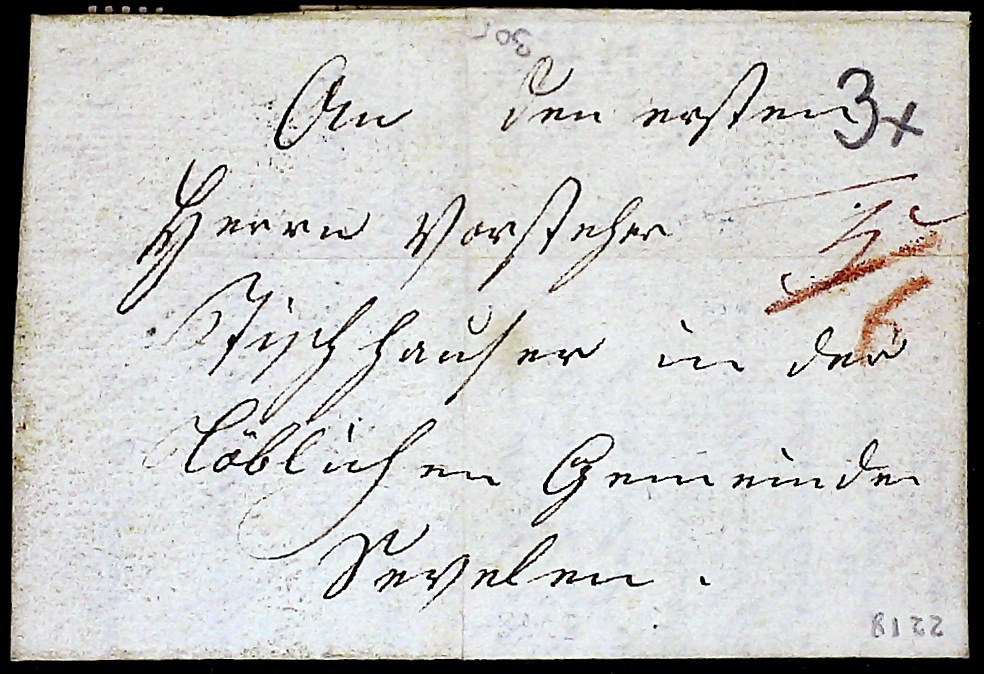 An den ersten 3x
Herrn Vorsteher
Tischhauser in der
löblichen Gemeinde
Sevelen.
305
22 18